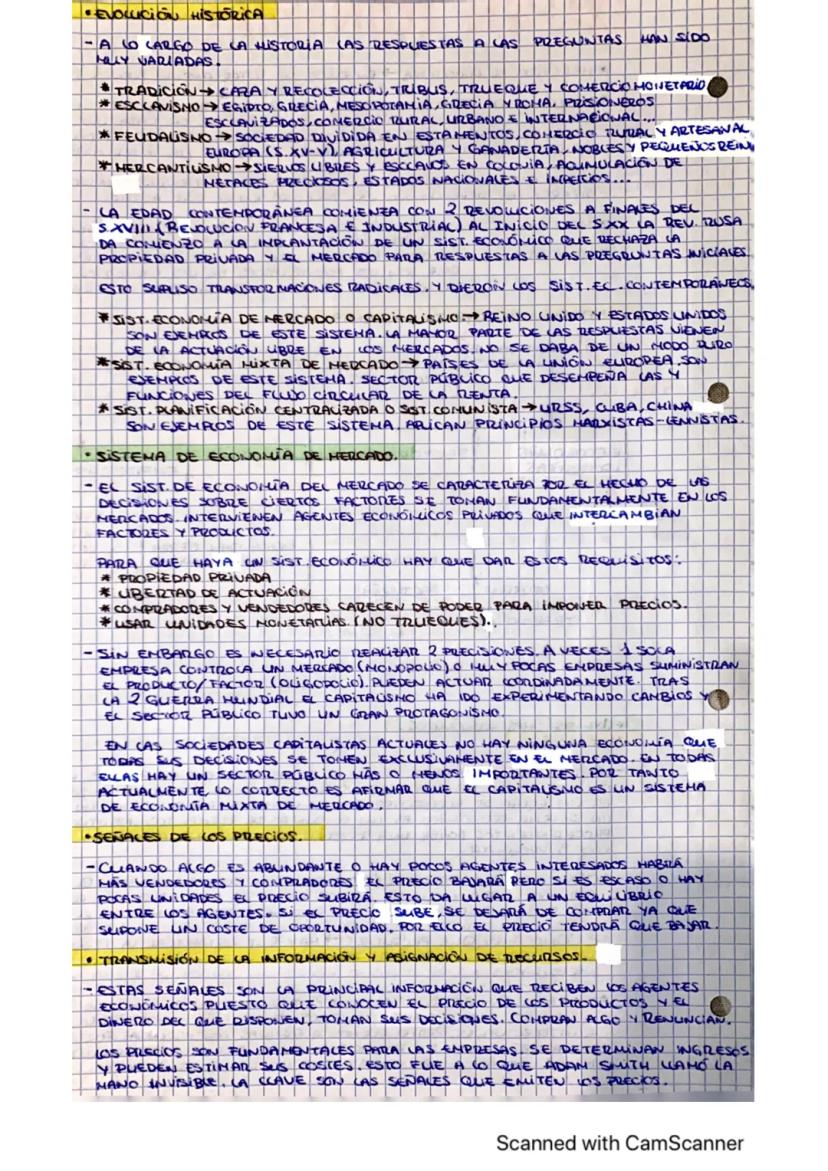 • EVOLUCIÓN HISTÓRICA
- A LO LARGO DE LA HISTORIA LAS RESPUESTAS A LAS PREGUNTAS HAN SIDO
MUY VARIADAS.
* TRADICIÓN → CAZA Y RECOLECCIÓN, TRIBUS, TRUEQUE Y COMERCIO MONETARIO
* ESCLAVISMO → EGIPTO, GRECIA, MESOPOTAMIA, GRECIA Y ROMA. PRISIONEROS
ESCLAVIZADOS, COMERCIO RURAL, URBANO E INTERNACIONAL...
* FEUDALISMO → SOCIEDAD DIVIDIDA EN ESTAMENTOS, COMERCIO RURAL Y ARTESANAL,
EUROPA (S. XV-V), AGRICULTURA Y GANADERÍA, NOBLES Y PEQUEÑOS REIN
* MERCANTILISMO → SIERVOS LIBRES Y ESCLAVOS EN COLONIA, ACUMULACIÓN DE
METALES PRECIOSOS, ESTADOS NACIONALES E IMPERIOS...
- LA EDAD CONTEMPORÁNEA COMIENZA CON 2 REVOLUCIONES A FINALES DEL
S.XVIII (REVOLUCIÓN FRANCESA E INDUSTRIAL) AL INICIO DEL S.XX LA REV. RUSA
DA COMIENZO A LA IMPLANTACIÓN DE UN SIST. ECONÓMICO QUE RECHAZA LA
PROPIEDAD PRIVADA Y EL MERCADO PARA RESPUESTAS A LAS PREGRUNTAS INICIALES.
ESTO SUPUSO TRANSFORMACIONES RADICALES. Y DIERON LOS SIST. EC. CONTEMPORÁNEOS.
* SIST. ECONOMÍA DE MERCADO O CAPITALISMO → REINO UNIDO Y ESTADOS UNIDOS
SON EJEMPLOS DE ESTE SISTEMA. LA MAYOR PARTE DE LAS RESPUESTAS VIENEN
DE LA ACTUACIÓN LIBRE EN LOS MERCADOS. NO SE DABA DE UN MODO PURO
* SIST. ECONOMÍA MIXTA DE MERCADO → PAÍSES DE LA UNIÓN EUROPEA. SON
EJEMPLOS DE ESTE SISTEMA. SECTOR PÚBLICO QUE DESEMPEÑA LAS 4
FUNCIONES DEL FLUJO CIRCULAR DE LA RENTA.
* SIST. PLANIFICACIÓN CENTRALIZADA O SIST. COMUNISTA → URSS, CUBA, CHINA
SON EJEMPLOS DE ESTE SISTEMA. APLICAN PRINCIPIOS MARXISTAS-LENNISTAS.
• SISTEMA DE ECONOMÍA DE MERCADO.
- EL SIST. DE ECONOMÍA DEL MERCADO SE CARACTERIZA POR EL HECHO DE LAS
DECISIONES SOBRE CIERTOS FACTORES SE TOMAN FUNDAMENTALMENTE EN LOS
MERCADOS. INTERVIENEN AGENTES ECONÓMICOS PRIVADOS QUE INTERCAMBIAN
FACTORES Y PRODUCTOS.
PARA QUE HAYA UN SIST. ECONÓMICO HAY QUE DAR ESTOS REQUISITOS:
* PROPIEDAD PRIVADA
* LIBERTAD DE ACTUACIÓN
* COMPRADORES Y VENDEDORES CARECEN DE PODER PARA IMPONER PRECIOS.
* USAR UNIDADES MONETARIAS. (NO TRUEQUES).
- SIN EMBARGO ES NECESARIO REALIZAR 2 PRECISIONES. A VECES 1 SOLA
EMPRESA CONTROLA UN MERCADO (MONOPOLIO) O MUY POCAS EMPRESAS SUMINISTRAN
EL PRODUCTO/FACTOR (OLIGOPOLIO). PUEDEN ACTUAR COORDINADAMENTE. TRAS
LA 2 GUERRA MUNDIAL EL CAPITALISMO HA IDO EXPERIMENTANDO CAMBIOS Y
EL SECTOR PÚBLICO TUVO UN GRAN PROTAGONISMO.
EN LAS SOCIEDADES CAPITALISTAS ACTUALES NO HAY NINGUNA ECONOMÍA QUE
TODAS SUS DECISIONES SE TOMEN EXCLUSIVAMENTE EN EL MERCADO. EN TODAS
ELLAS HAY UN SECTOR PÚBLICO MÁS O MENOS IMPORTANTES. POR TANTO
ACTUALMENTE LO CORRECTO ES AFIRMAR QUE EL CAPITALISMO ES UN SISTEMA
DE ECONOMÍA MIXTA DE MERCADO.
• SEÑALES DE LOS PRECIOS.
- CUANDO ALGO ES ABUNDANTE O HAY POCOS AGENTES INTERESADOS HABRÁ
MÁS VENDEDORES Y COMPRADORES EL PRECIO BAJARÁ PERO SI ES ESCASO O HAY
POCAS UNIDADES EL PRECIO SUBIRÁ. ESTO DA LUGAR A UN EQUILIBRIO
ENTRE LOS AGENTES. SI EL PRECIO SUBE, SE DEJARÁ DE COMPRAR YA QUE
SUPONE UN COSTE DE OPORTUNIDAD. POR ELLO EL PRECIO TENDRÁ QUE BAJAR.
• TRANSMISIÓN DE LA INFORMACIÓN Y ASIGNACIÓN DE RECURSOS.
- ESTAS SEÑALES SON LA PRINCIPAL INFORMACIÓN QUE RECIBEN LOS AGENTES
ECONÓMICOS PUESTO QUE CONOCEN EL PRECIO DE LOS PRODUCTOS Y EL
DINERO DEL QUE DISPONEN, TOMAN SUS DECISIONES. COMPRAN ALGO Y RENUNCIAN.
LOS PRECIOS SON FUNDAMENTALES PARA LAS EMPRESAS. SE DETERMINAN INGRESOS
Y PUEDEN ESTIMAR SUS COSTES. ESTO FUE A LO QUE ADAM SMITH LLAMÓ LA
MANO INVISIBLE. LA CLAVE SON LAS SEÑALES QUE EMITEN LOS PRECIOS.
Scanned with CamScanner